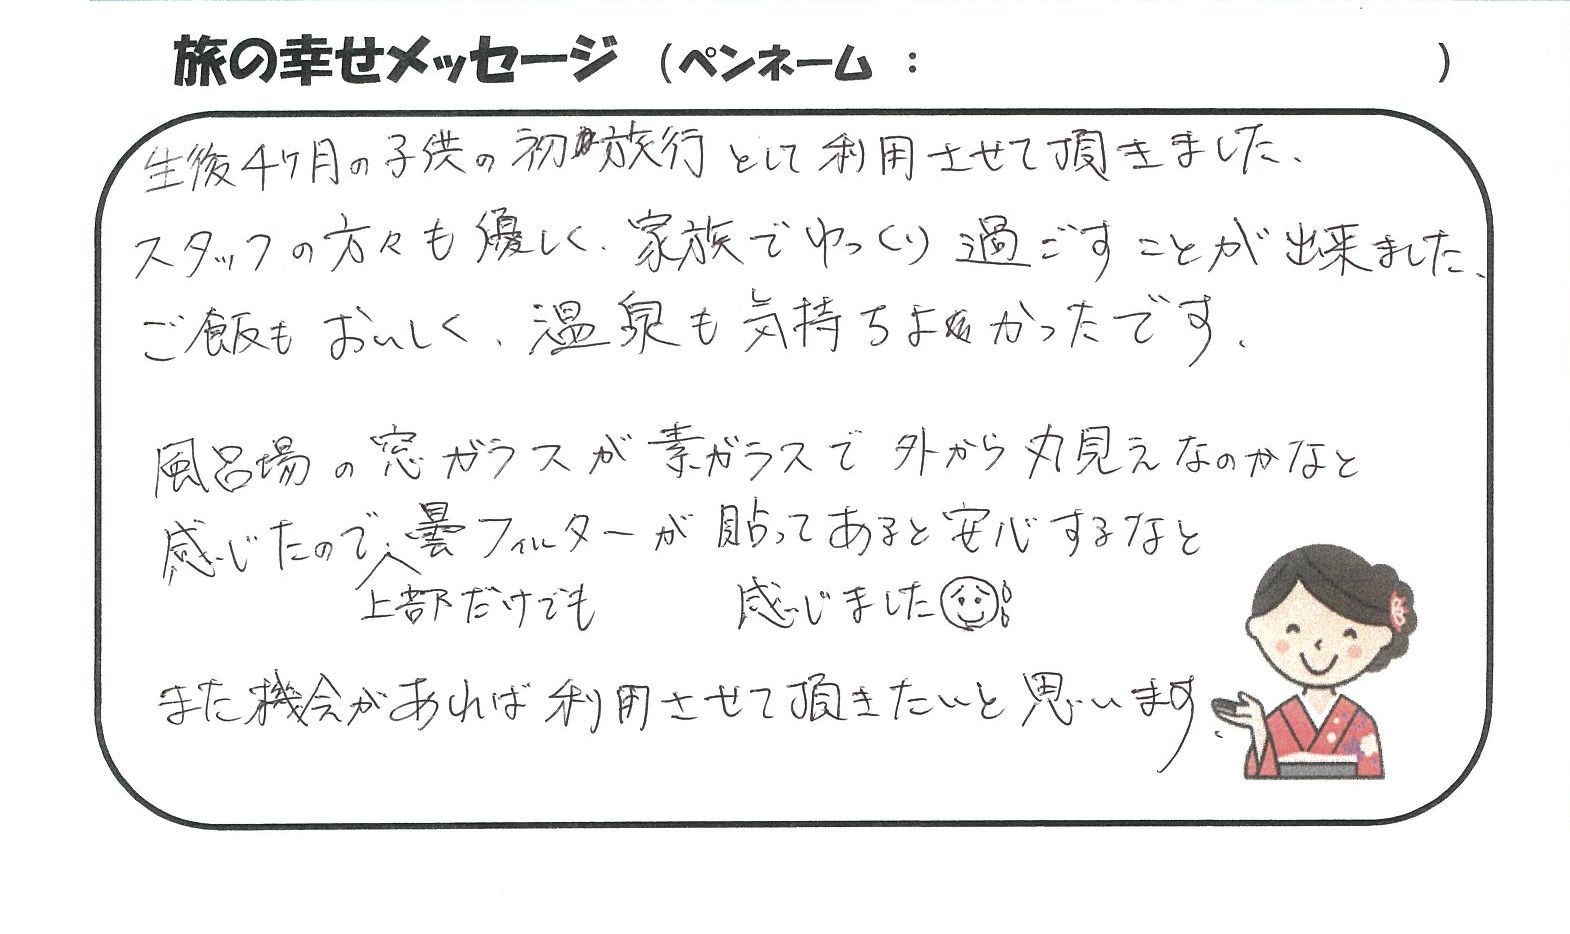 旅の幸せメッセージ （ペンネーム ： ）
生後4ヶ月の子供の初旅行として利用させて頂きました、
スタッフの方々も優しく、家族でゆっくり過ごすことが出来ました、
ご飯もおいしく、温泉も気持ちよかったです、
風呂場の窓ガラスが素ガラスで外から丸見えなのかなと
感じたので、曇フィルターが貼ってあると安心するなと
上部だけでも 感じました
また機会があれば利用させて頂きたいと思います、